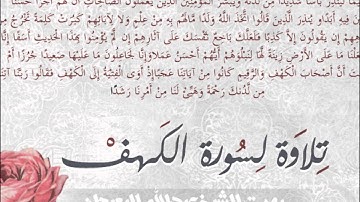 لينذر بأسا شديدا من لدنه ويبشر المؤمنين الذين يعملون الصالحات أن لهم أجرا حسنا
فيه أبدا وينذر الذين قالوا اتخذ الله ولدا ما لهم به من علم ولا لآبائهم كبرت كلمة تخرج
أفواههم إن يقولون إلا كذبا فلعلك باخع نفسك على آثارهم إن لم يؤمنوا بهذا الحديث أسفا
جعلنا ما على الأرض زينة لها لنبلوهم أيهم أحسن عملا وإنا لجاعلون ما عليها صعيدا جرزا
أن أصحاب الكهف والرقيم كانوا من آياتنا عجبا إذ أوى الفتية إلى الكهف فقالوا ربنا آتنا
من لدنك رحمة وهيئ لنا من أمرنا رشدا
تلاوة لسورة الكهف